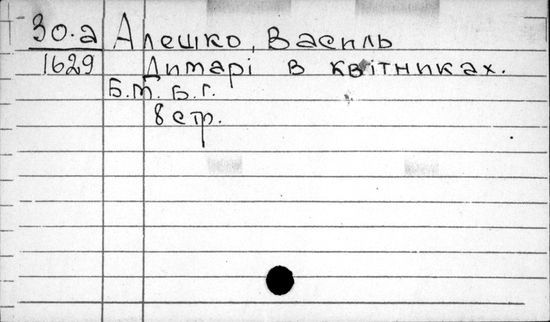 30.а Алешко, Василь
1629 Димарі в квітниках.
Б.м. Б.г.
8 стр.